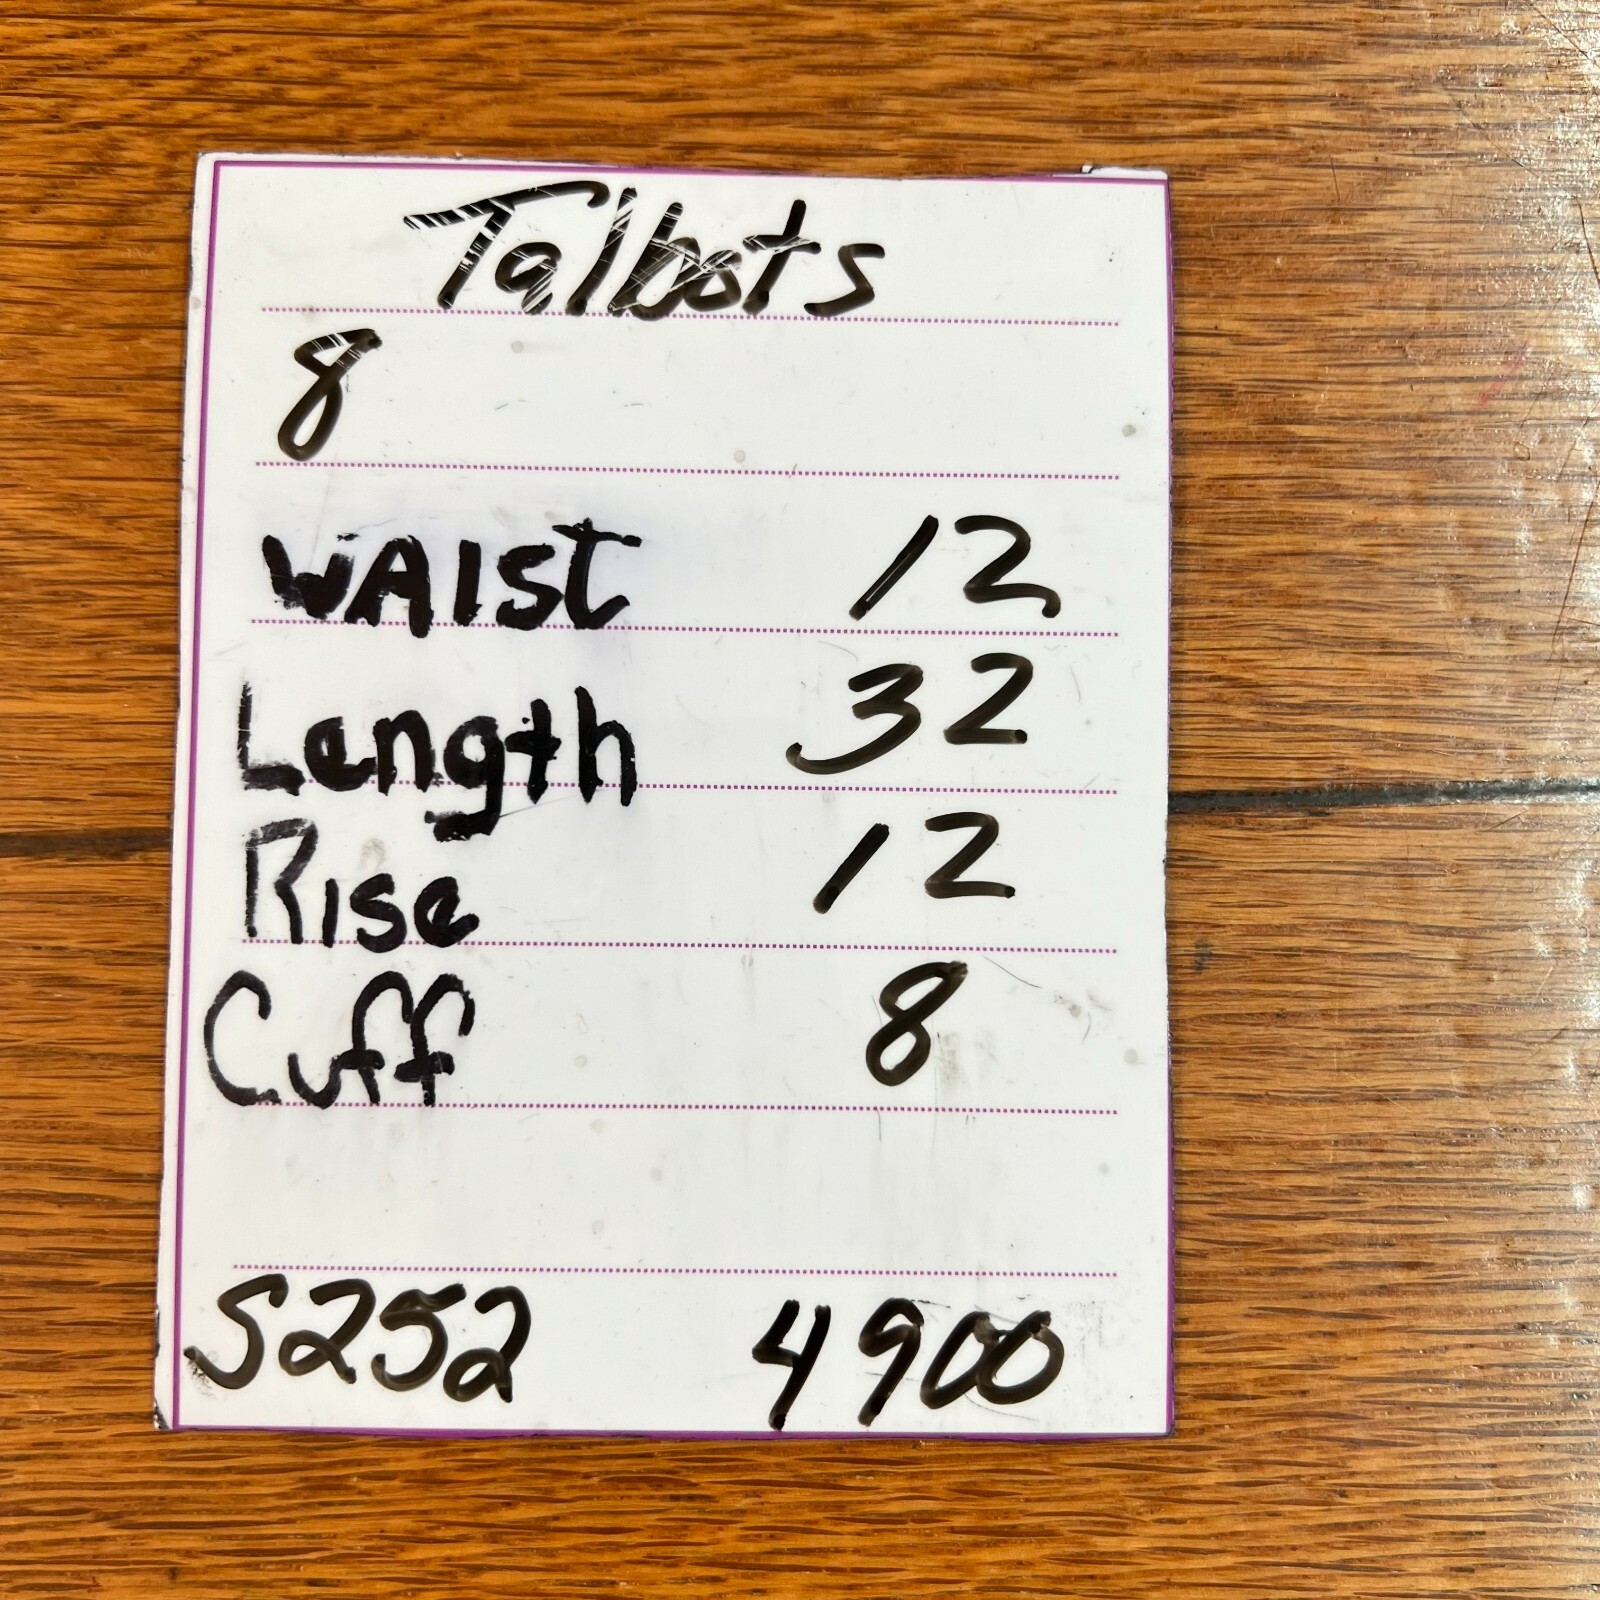 Talbots
8
WAIST 12
Length 32
Rise 12
Cuff 8
S252 4900